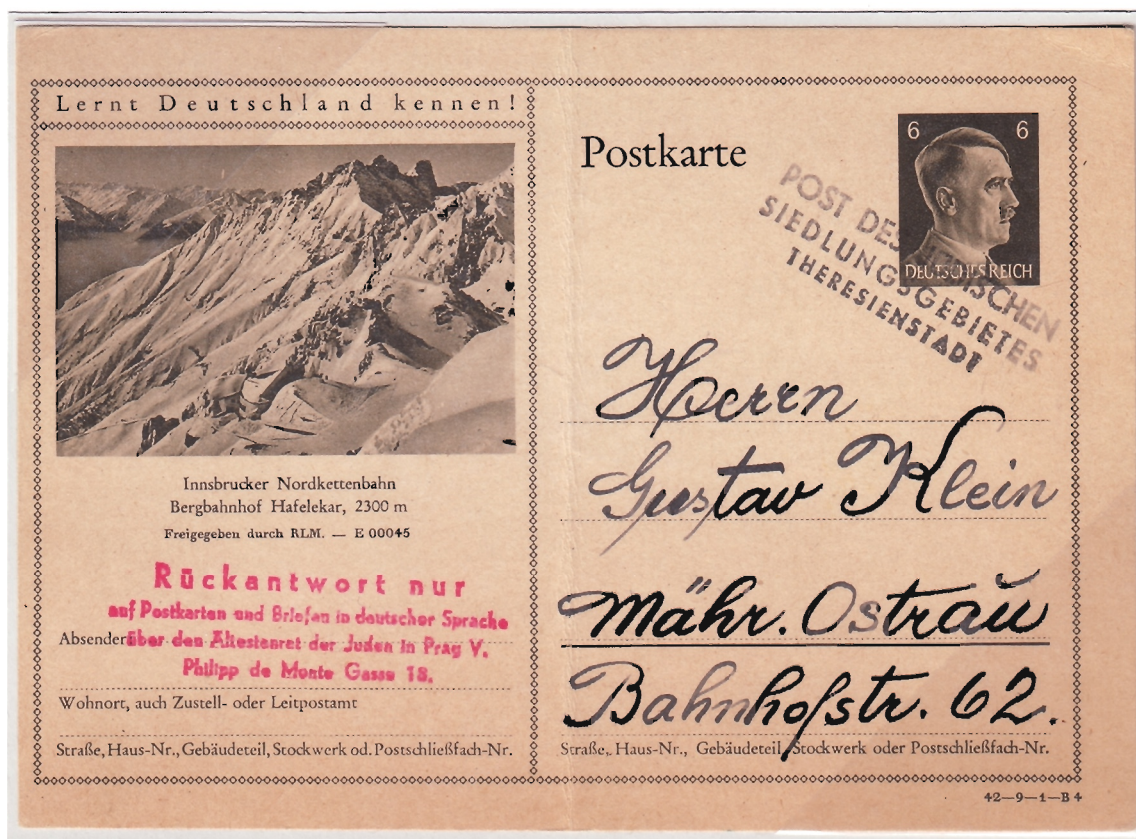 Lernt Deutschland kennen!
Innsbrucker Nordkettenbahn
Bergbahnhof Hafelekar, 2300 m
Freigegeben durch RLM. — E 00045
Rückantwort nur
auf Postkarten und Briefen in deutscher Sprache
Absender über den Ältestenrat der Juden in Prag V.
Philipp de Monte Gasse 18.
Wohnort, auch Zustell- oder Leitpostamt
Straße, Haus-Nr., Gebäudeteil, Stockwerk od. Postschließfach-Nr.
Postkarte
6 6
DEUTSCHES REICH
POST DES ISCHEN
SIEDLUNGSGEBIETES
THERESIENSTADT
Herrn
Gustav Klein
Mähr. Ostrau
Bahnhofstr. 62.
Straße, Haus-Nr., Gebäudeteil, Stockwerk oder Postschließfach-Nr.
42—9—1—B 4